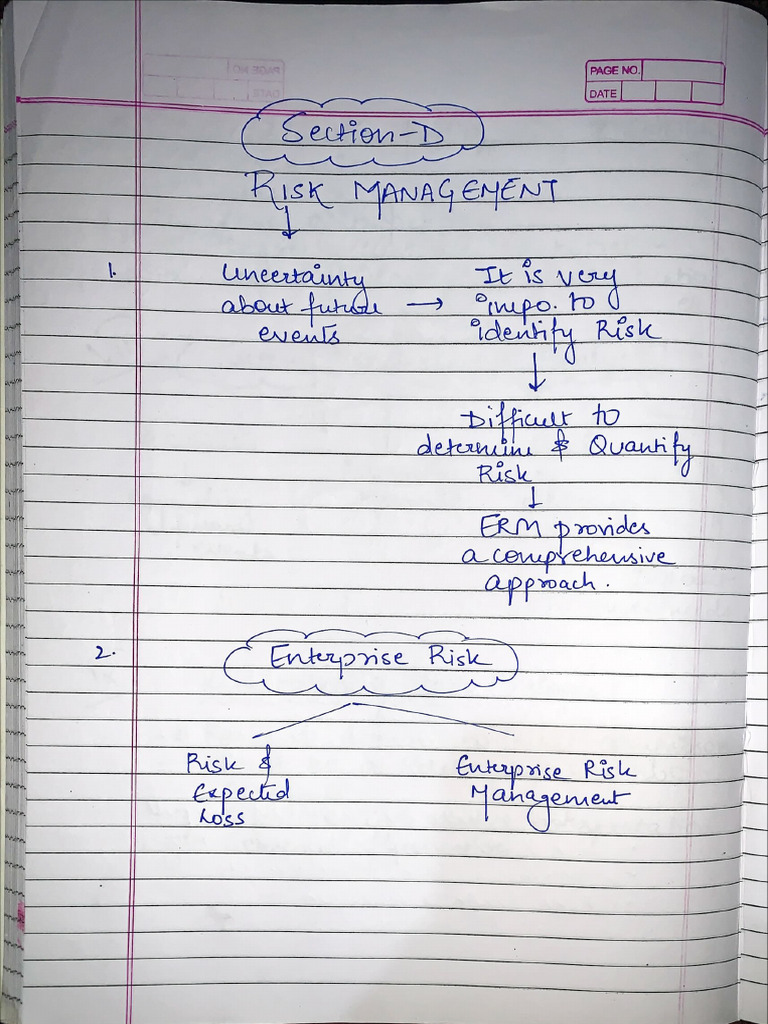 PAGE NO.
DATE
Section-D
RISK MANAGEMENT
↓
1.
Uncertainty
about future →
events
It is very
impo. to
identify Risk
↓
Difficult to
determine & Quantify
Risk
↓
ERM provides
a comprehensive
approach.
2.
Enterprise Risk
Risk &
Expected
Loss
Enterprise Risk
Management